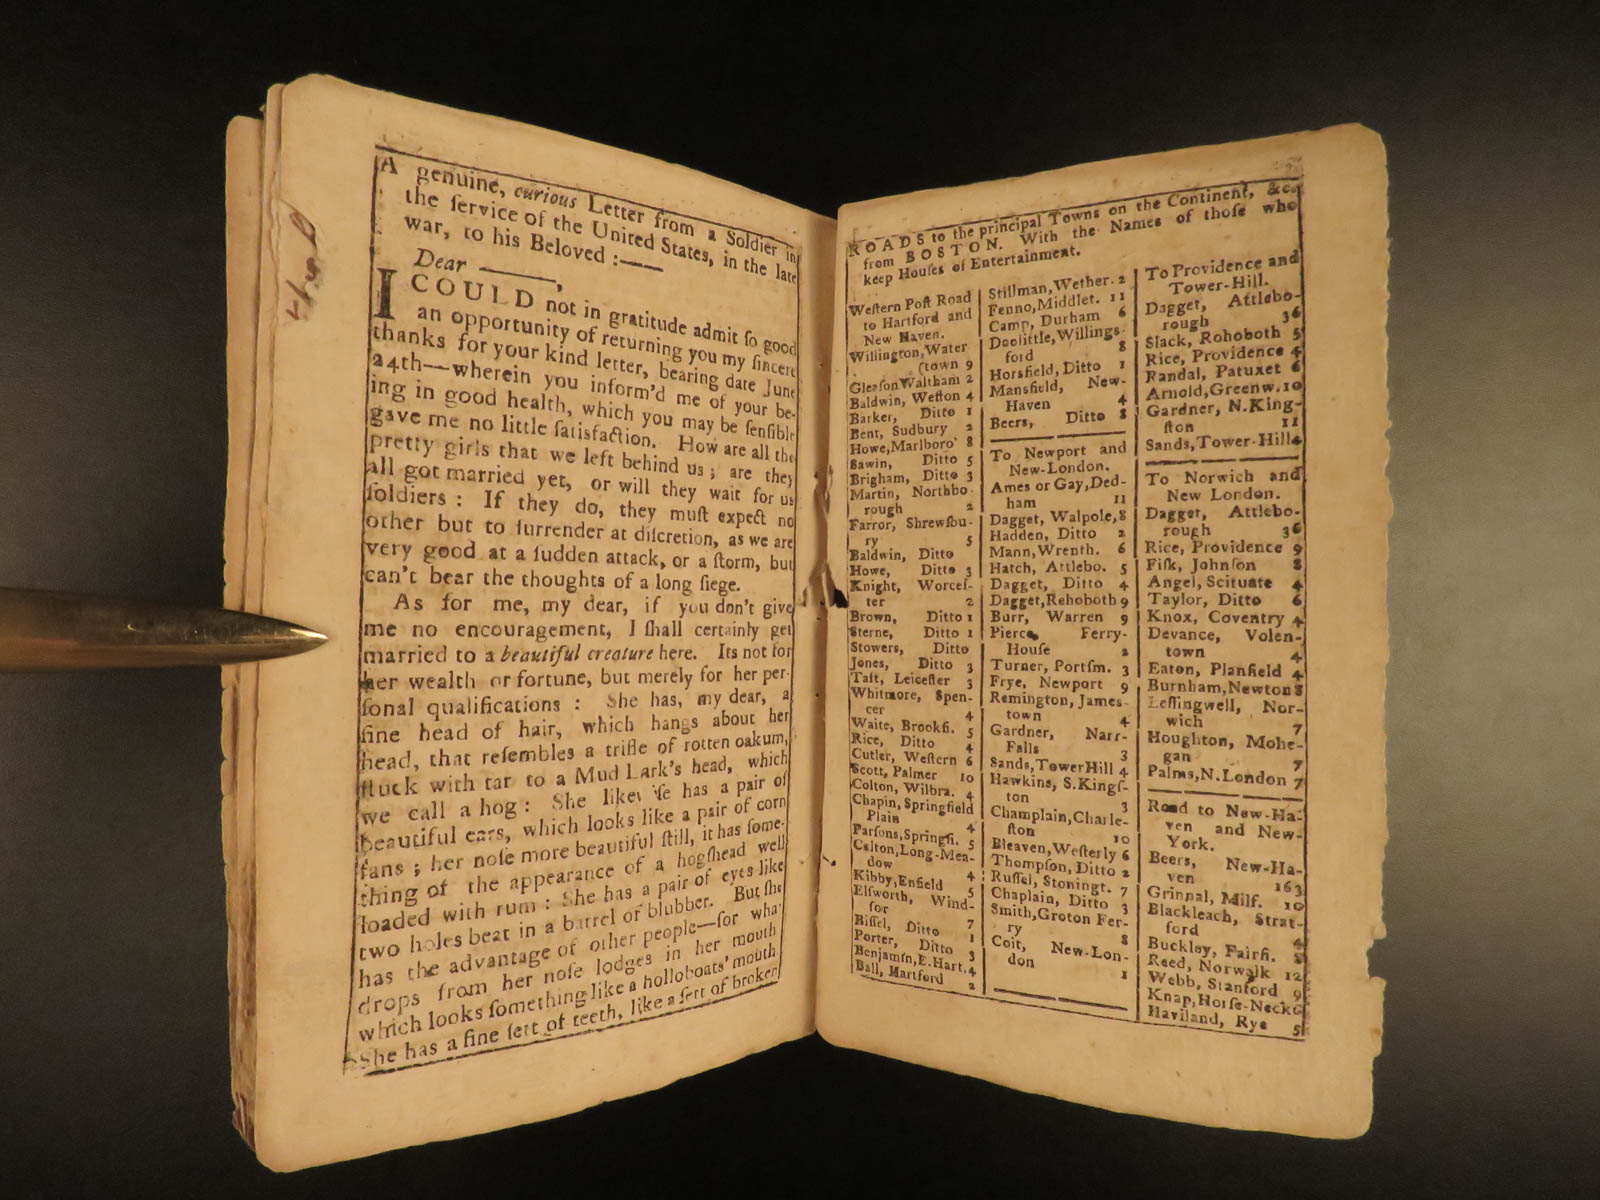 A genuine, curious Letter from a Soldier in
the ſervice of the United States, in the late
war, to his Beloved :——
Dear ———,
I COULD not in gratitude admit ſo good
an opportunity of returning you my ſincere
thanks for your kind letter, bearing date June
24th—wherein you inform'd me of your be-
ing in good health, which you may be ſenſible
gave me no little ſatisfaction. How are all the
pretty girls that we left behind us; are they
all got married yet, or will they wait for us
ſoldiers : If they do, they muſt expect no
other but to ſurrender at diſcretion, as we are
very good at a ſudden attack, or a ſtorm, but
can't bear the thoughts of a long ſiege.
As for me, my dear, if you don't give
me no encouragement, I ſhall certainly get
married to a beautiful creature here. Its not for
her wealth or fortune, but merely for her per-
ſonal qualifications : She has, my dear, a
fine head of hair, which hangs about her
head, that reſembles a trifle of rotten oakum,
ſtuck with tar to a Mud Lark's head, which
we call a hog : She likewiſe has a pair of
beautiful ears, which looks like a pair of corn
fans ; her noſe more beautiful ſtill, it has ſome-
thing of the appearance of a hogſhead well
loaded with rum : She has a pair of eyes like
two holes beat in a barrel of blubber. But ſhe
has the advantage of other people—for what
drops from her noſe lodges in her mouth
which looks ſomething like a holloboats' mouth
She has a fine ſett of teeth, like a ſett of broken
ROADS to the principal Towns on the Continent, &c.
from BOSTON. With the Names of thoſe who
keep Houſes of Entertainment.
Weſtern Poſt Road
to Hartford and
New Haven.
Willington, Water
(town 9
Gleaſon Waltham 2
Baldwin, Weſton 4
Barker, Ditto 1
Bent, Sudbury 2
Howe, Marlboro' 8
Sawin, Ditto 5
Brigham, Ditto 3
Martin, Northbo-
rough 2
Farror, Shrewſbu-
ry 5
Baldwin, Ditto
Howe, Ditto 3
Knight, Worceſ-
ter 2
Brown, Ditto 1
Sterne, Ditto 1
Stowers, Ditto
Jones, Ditto 3
Taft, Leiceſter 3
Whitmore, Spen-
cer 4
Waite, Brookfi. 5
Rice, Ditto 4
Cutler, Weſtern 6
Scott, Palmer 10
Colton, Wilbra. 4
Chapin, Springfield
Plain 4
Parſons, Springfi. 5
Colton, Long-Mea-
dow 4
Kibby, Enfield 5
Elſworth, Wind-
ſor 7
Biſſel, Ditto 1
Porter, Ditto 3
Benjamin, E. Hart. 4
Ball, Hartford 2
Stillman, Wether. 2
Fenno, Middlet. 11
Camp, Durham 6
Doolittle, Willings-
ford 8
Horsfield, Ditto 1
Mansfield, New-
Haven 4
Beers, Ditto 8
To Newport and
New-London.
Ames or Gay, Ded-
ham 11
Dagget, Walpole, 8
Hadden, Ditto 2
Mann, Wrenth. 6
Hatch, Attlebo. 5
Dagget, Ditto 4
Dagget, Rehoboth 9
Burr, Warren 9
Pierce, Ferry-
Houſe 2
Turner, Portſm. 3
Frye, Newport 9
Remington, James-
town 4
Gardner, Narr-
Falls 3
Sands, Tower Hill 4
Hawkins, S. Kingſ-
ton 3
Champlain, Charle-
ſton 10
Bleaven, Weſterly 6
Thompſon, Ditto 2
Ruſſel, Stoningt. 7
Chaplain, Ditto 3
Smith, Groton Fer-
ry 8
Coit, New-Lon-
don 1
To Providence and
Tower-Hill.
Dagget, Attlebo-
rough 36
Slack, Rohoboth 5
Rice, Providence 4
Randal, Patuxet 6
Arnold, Greenw. 10
Gardner, N. King-
ſton 11
Sands, Tower-Hill 4
To Norwich and
New London.
Dagget, Attlebo-
rough 36
Rice, Providence 9
Fiſk, Johnſon 8
Angel, Scituate 4
Taylor, Ditto 6
Knox, Coventry 4
Devance, Volen-
town 4
Eaton, Planfield 4
Burnham, Newton 8
Leſſingwell, Nor-
wich 7
Houghton, Mohe-
gan 7
Palms, N. London 7
Road to New-Ha-
ven and New-
York.
Beers, New-Ha-
ven 163
Grinnal, Milf. 10
Blackleach, Strat-
ford 4
Buckley, Fairfi. 8
Reed, Norwalk 12
Webb, Stanford 9
Knap, Horſe-Neck 6
Haviland, Rye 5